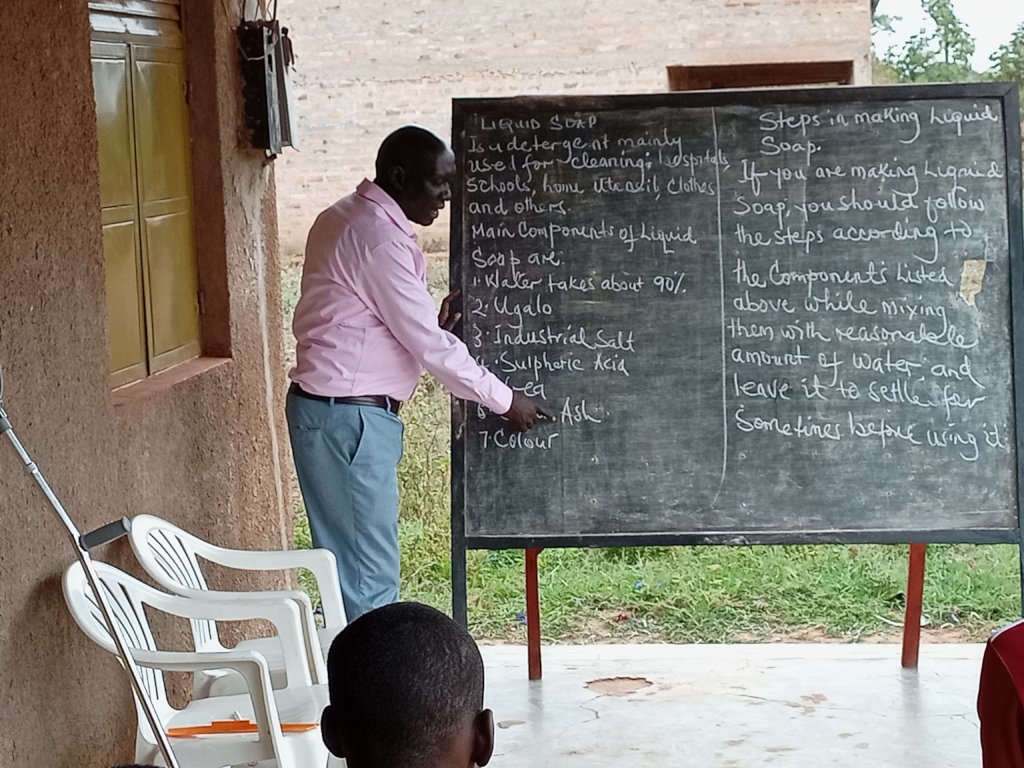 LIQUID SOAP
Is a detergent mainly
used for cleaning; hospitals,
Schools, home utensil, clothes
and others.
Main Components of Liquid
Soap are:
1. Water takes about 90%.
2. Ugalo
3. Industrial Salt
4. Sulpheric Acid
6. Ash.
7. Colour
Steps in making Liquid
Soap.
If you are making Liquid
Soap, you should follow
the steps according to
the Components Listed
above while mixing
them with reasonable
amount of water, and
leave it to settle for
Sometimes before using it